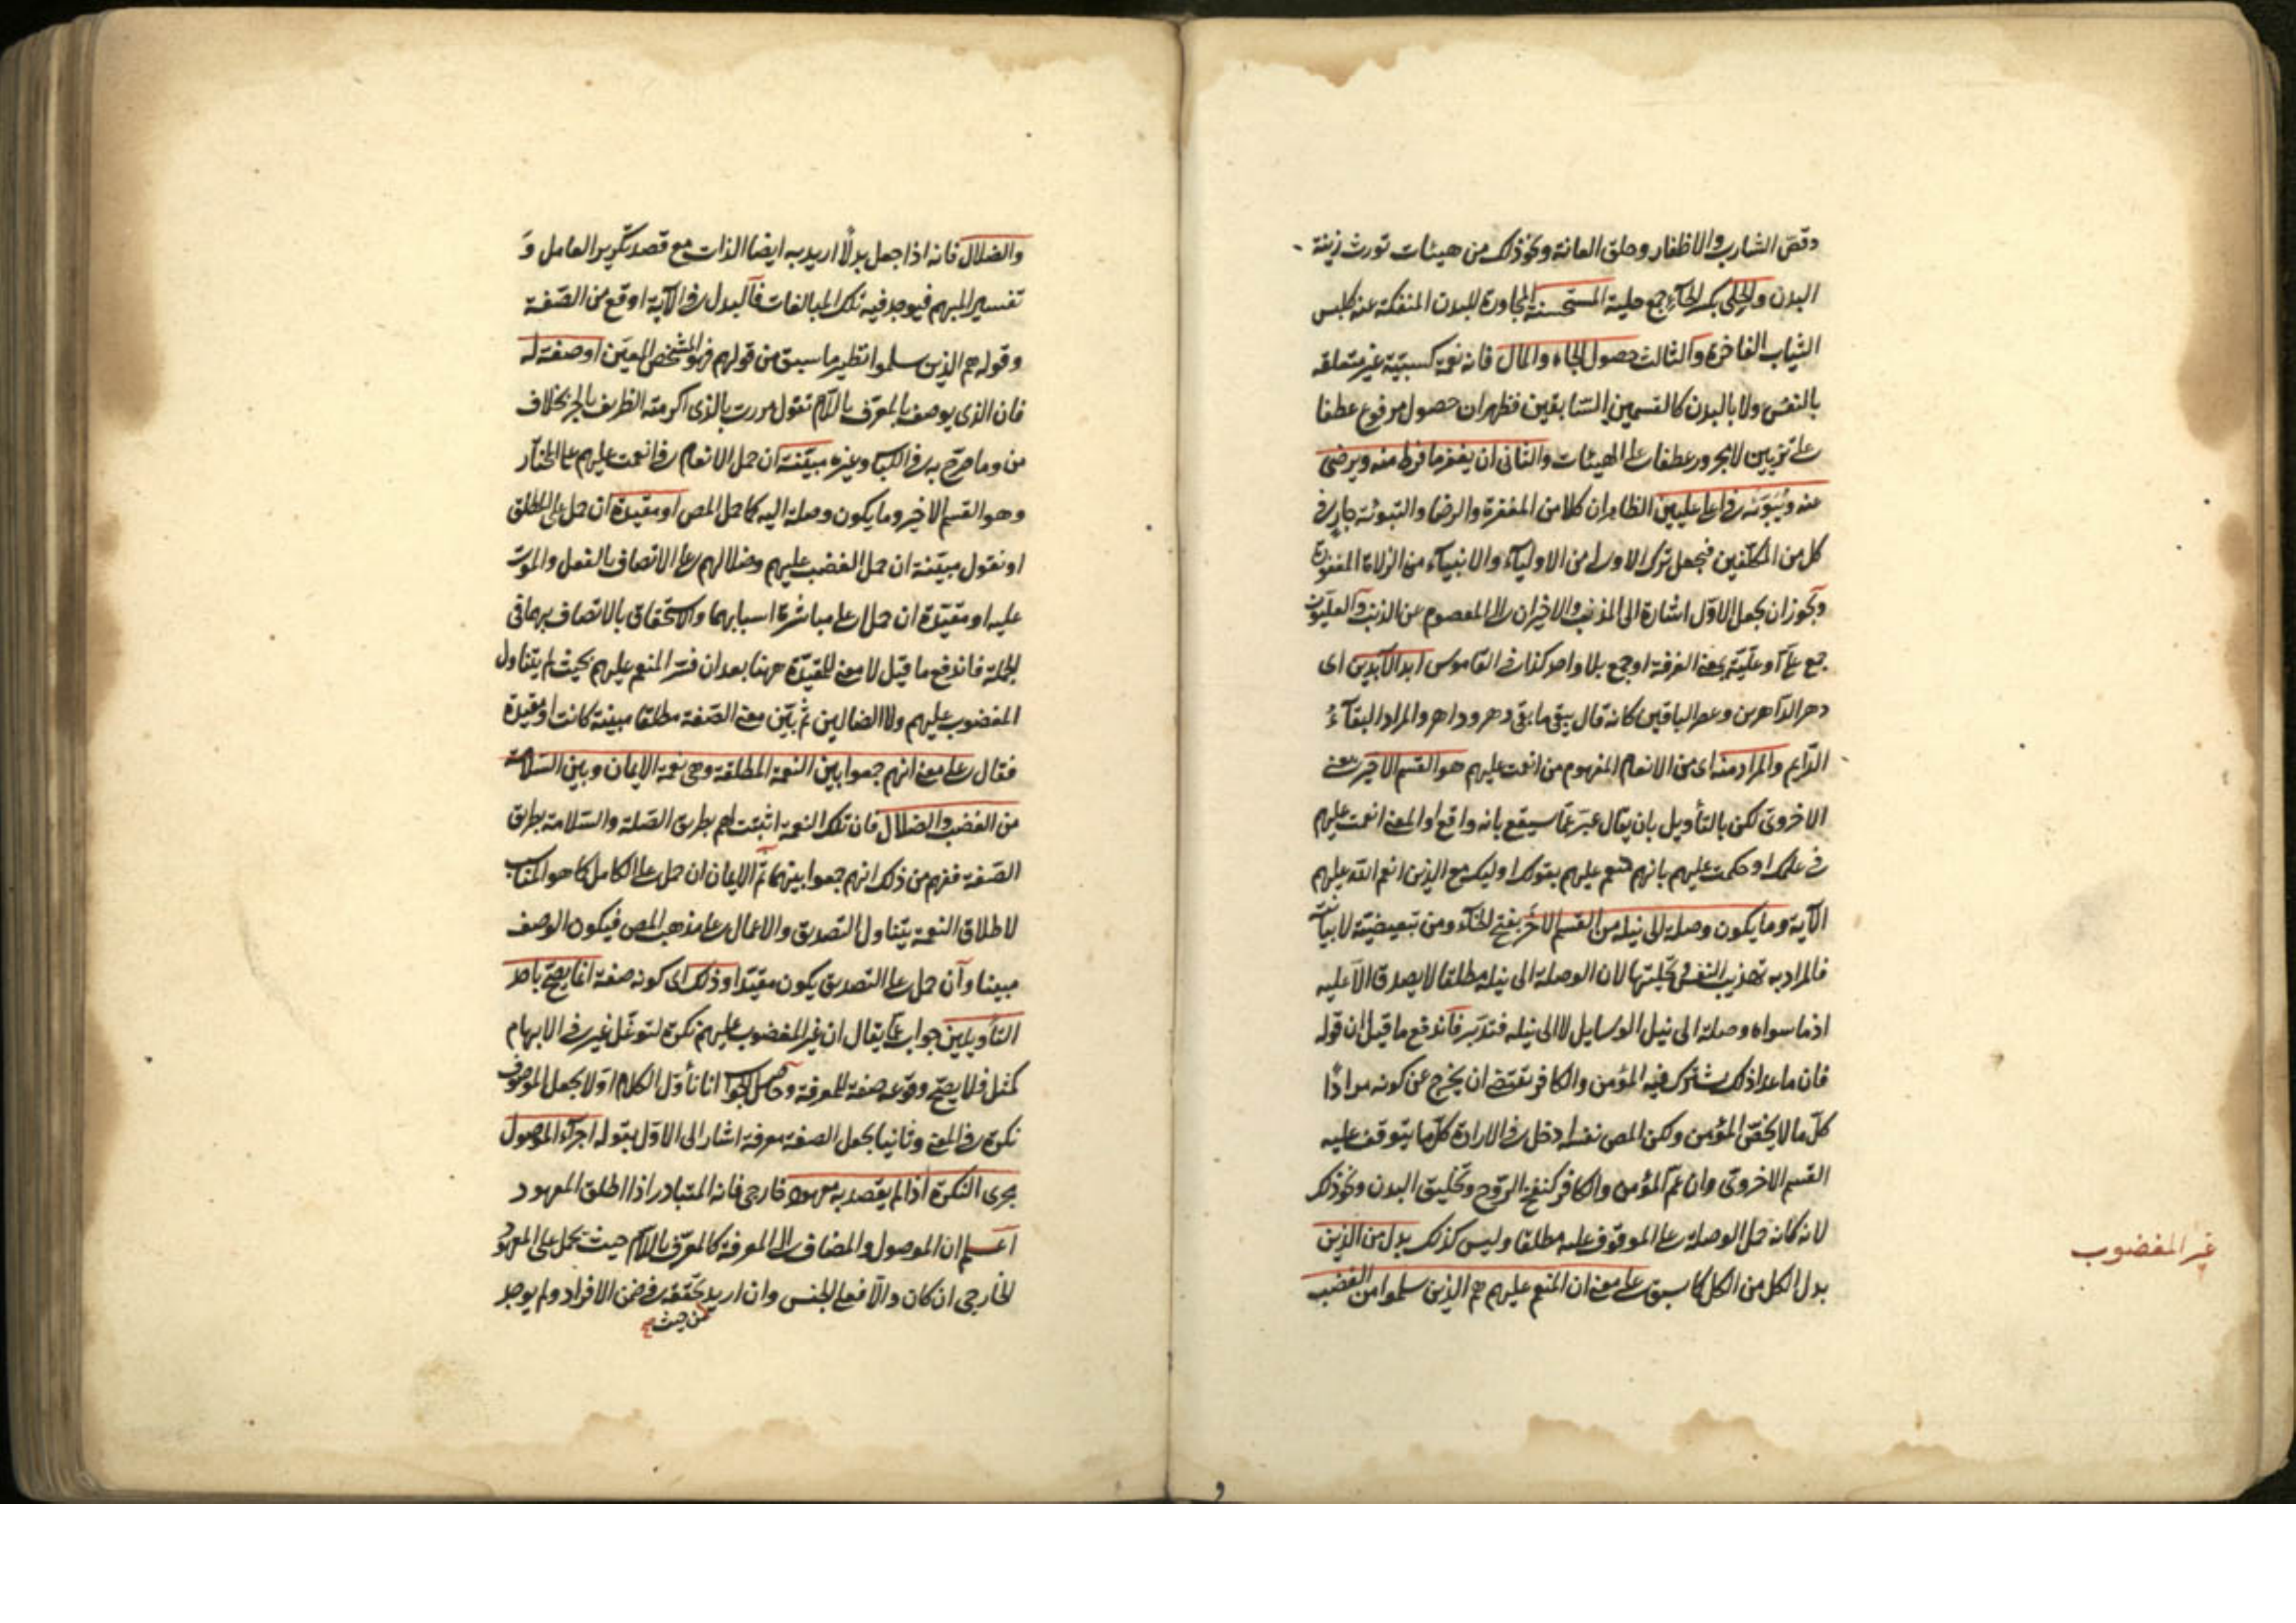 وقص الشارب والاظفار وحلق العانة ونحو ذلك من هيئات تورث زينة
البدن والحلى بكسر الحاء جمع حلية المستحسنة المجاورة للبدن المنفكة عنه كلبس
الثياب الفاخرة والثالث حصول الجاه والمال فانه نعمة كسبية غير متعلقه
بالنفس ولا بالبدن كالقسمين السابقين فظهر ان حصول مرفوع عطفا
على تزيين لا مجرور عطفا على الهيئات والثانى ان يغفر ما فرط منه ويرضى
عنه ويبوئه فى اعلى عليين الظاهر ان كلا من المغفرة والرضا والتبوئه جار فى
كل من المكلفين فيجعل ترك الاولى من الاولياء والانبياء من الزلات المغفورة
ويجوز ان يجعل الاول اشارة الى المذنب والاخيران الى المعصوم عن الذنب والعليون
جمع على او علية بمعنى الغرفة او جمع بلا واحد كذا فى القاموس ابد الآبدين اى
دهر الداهرين وعصر الباقين كانه قال يبقى ما بقى دهر وداهر والمراد البقاء
الدايم والمراد منه اى من الانعام المفهوم من انعمت عليهم هو القسم الاخير يعنى
الاخروى لكن بالتأويل بان يقال عبر عما سيقع بانه واقع او المعنى انعمت عليهم
فى علمك او حكمت عليهم بانهم منعم عليهم بقولك اوليك مع الذين انعم الله عليهم
الآية وما يكون وصلة الى نيله من القسم الآخر بفتح الخاء ومن تبعيضية لا بيانية
فالمراد به تهذيب النفس وتحليتها لان الوصلة الى نيله مطلقا لا يصدق الا عليه
اذ ما سواه وصلة الى نيل الوسايل لا الى نيله فتدبر فاندفع ما قيل ان قوله
فان ما عدا ذلك يشترك فيه المؤمن والكافر يقتضى ان يخرج عن كونه مرادا
كل ما لا يخص المؤمن ولكن المص نفسه ادخل فى الارادة كل ما يتوقف عليه
القسم الاخروى وان عم المؤمن والكافر كنفخ الروح وتخليق البدن ونحو ذلك
لانه كانه حمل الوصلة على الموقوف عليه مطلقا وليس كذلك بدل من الذين
بدل الكل من الكل كما سبق على معنى ان المنعم عليهم هم الذين سلموا من الغضب
غير المغضوب
والضلال فانه اذا جعل بدلا اريد به ايضا الذات مع قصد تكرير العامل و
تفسير المبهم فيوجد فيه تلك المبالغات فالبدل فى الآية اوقع من الصفة
وقوله هم الذين سلموا نظير ما سبق من قولهم فهو المشخص المعين او صفة له
فان الذى يوصف بالمعرف باللام تقول مررت بالذى اكرمته الظريف بالجر بخلاف
من وما صرح به فى اللباب وغيره مبينة ان حمل الانعام فى انعمت عليهم على المختار
وهو القسم الاخير وما يكون وصلة اليه كما حمل المص او مقيدة ان حمل على المطلق
او نقول مبينة ان حمل الغضب عليهم وضلالهم على الاتصاف بالفعل والموت
عليه او مقيدة ان حمل على مباشرة اسبابهما والاستحقاق بالاتصاف بهما فى
الجملة فاندفع ما قيل لا معنى للمقيدة ههنا بعد ان فسر المنعم عليهم بحيث لم يتناول
المغضوب عليهم ولا الضالين ثم بين معنى الصفة مطلقا مبينة كانت او مقيدة
فقال على معنى انهم جمعوا بين النعمة المطلقة وهى نعمة الايمان وبين السلامة
من الغضب والضلال فان تلك النعمة اثبتت لهم بطريق الصلة والسلامة بطريق
الصفة ففهم من ذلك انهم جمعوا بينهما ثم الايمان ان حمل على الكامل كما هو المناسب
لاطلاق النعمة يتناول التصديق والاعمال على مذهب المص فيكون الوصف
مبينا وان حمل على التصديق يكون مقيدا وذلك اى كونه صفة انما يصح باحد
التأويلين جواب عما يقال ان غير المغضوب عليهم نكرة لتوغل غير فى الابهام
كمثل فلا يصح وقوعه صفة للمعرفة وحاصل الجواب انا نأول الكلام اولا بجعل الموصوف
نكرة فى المعنى وثانيا بجعل الصفة معرفة اشار الى الاول بقوله اجراء الموصول
مجرى النكرة اذ لم يقصد به معهود خارجى فانه المتبادر اذا اطلق المعهود
اعلم ان الموصول والمضاف الى المعرفة كالمعرف باللام حيث يحمل على المعهود
الخارجى ان كان والا فعلى الجنس وان اريد تحققه فى ضمن الافراد ولم يوجد
من حيث